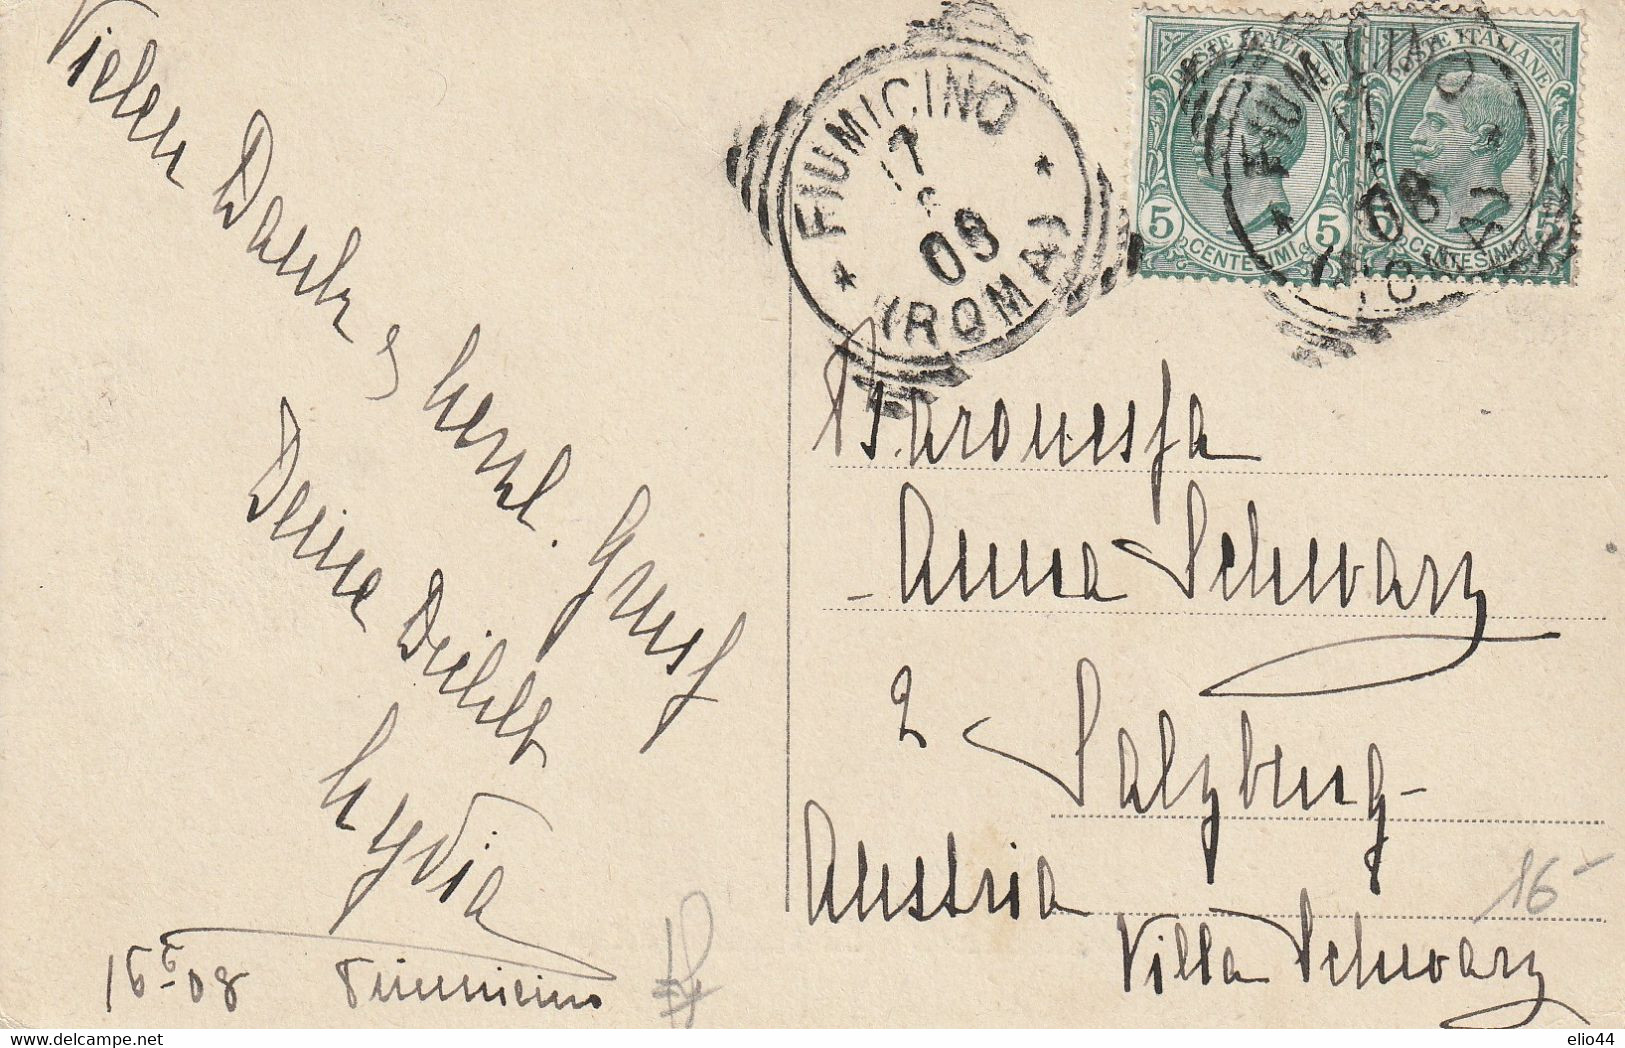 Vielen Dank & herzl. Gruss
Deine
Lydia
16 6 - 08 Fiumicino
FIUMICINO
17
08
(ROMA)
POSTE ITALIANE
5 CENTESIMI 5
POSTE ITALIANE
5 CENTESIMI 5
FIUMICINO
08
Baronessa
Anna Schwarz
Salzburg -
Austria
Villa Schwarz
16 -
elio44